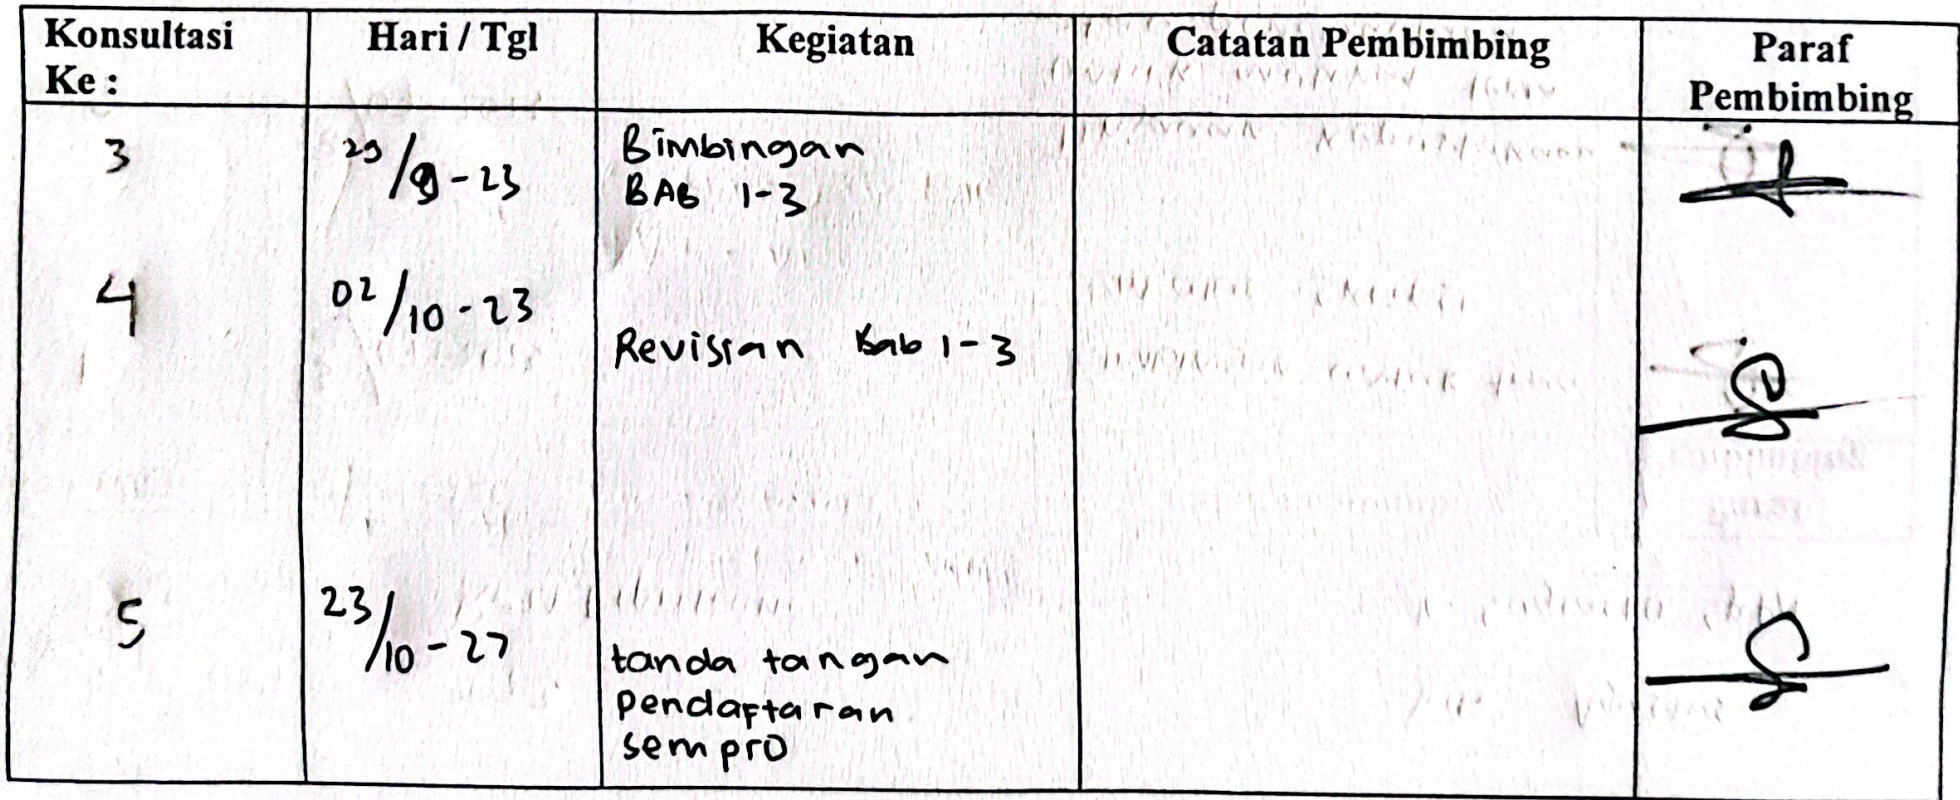 Konsultasi Ke :
Hari / Tgl
Kegiatan
Catatan Pembimbing
Paraf Pembimbing
3
29/9-23
Bimbingan
BAB 1-3
4
02/10-23
Revisian Bab 1-3
5
23/10-27
tanda tangan
Pendaftaran
sempro